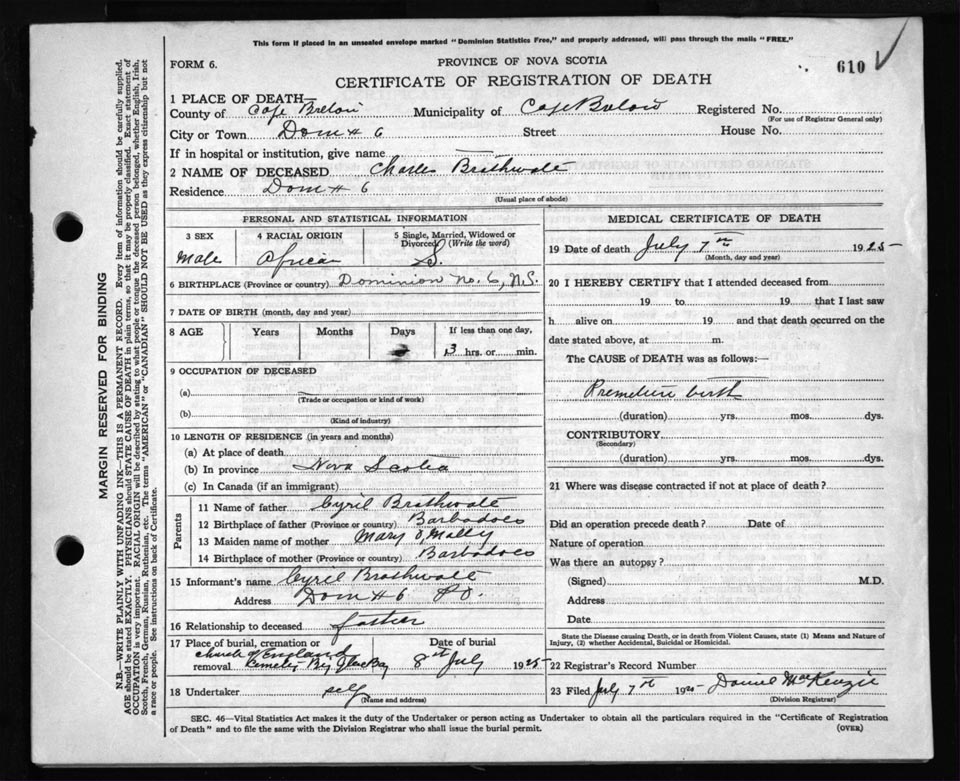 This form if placed in an unsealed envelope marked "Dominion Statistics Free," and properly addressed, will pass through the mails "FREE."
FORM 6.
PROVINCE OF NOVA SCOTIA
610
CERTIFICATE OF REGISTRATION OF DEATH
1 PLACE OF DEATH—
County of Cape Breton Municipality of Cape Breton Registered No.
(For use of Registrar General only)
City or Town Dom # 6 Street House No.
If in hospital or institution, give name
2 NAME OF DECEASED Charles Brathwate
Residence Dom # 6
(Usual place of abode)
PERSONAL AND STATISTICAL INFORMATION
3 SEX 4 RACIAL ORIGIN 5 Single, Married, Widowed or Divorced (Write the word)
Male African S.
6 BIRTHPLACE (Province or country) Dominion No. 6, N.S.
7 DATE OF BIRTH (month, day and year)
8 AGE Years Months Days If less than one day,
3 hrs. or min.
9 OCCUPATION OF DECEASED
(a)
(Trade or occupation or kind of work)
(b)
(Kind of industry)
10 LENGTH OF RESIDENCE (in years and months)
(a) At place of death
(b) In province Nova Scotia
(c) In Canada (if an immigrant)
Parents
11 Name of father Cyril Brathwate
12 Birthplace of father (Province or country) Barbadoes
13 Maiden name of mother Mary O,Mally
14 Birthplace of mother (Province or country) Barbadoes
15 Informant's name Cyril Brathwate
Address Dom # 6
16 Relationship to deceased father
17 Place of burial, cremation or removal Church of England Cemetery Big Glace Bay
Date of burial 8 July 1925
18 Undertaker self
(Name and address)
MEDICAL CERTIFICATE OF DEATH
19 Date of death July 7th 1925
(Month, day and year)
20 I HEREBY CERTIFY that I attended deceased from
19 to 19 that I last saw
h alive on 19 and that death occurred on the
date stated above, at m.
The CAUSE of DEATH was as follows:—
Premeture birth
(duration) yrs. mos. dys.
CONTRIBUTORY
(Secondary)
(duration) yrs. mos. dys.
21 Where was disease contracted if not at place of death?
Did an operation precede death? Date of
Nature of operation
Was there an autopsy?
(Signed) M.D.
Address
Date
State the Disease causing Death, or in death from Violent Causes, state (1) Means and Nature of
Injury, (2) whether Accidental, Suicidal or Homicidal.
22 Registrar's Record Number
23 Filed July 7th 1925 Daniel MacKenzie
(Division Registrar)
SEC. 46—Vital Statistics Act makes it the duty of the Undertaker or person acting as Undertaker to obtain all the particulars required in the "Certificate of Registration
of Death" and to file the same with the Division Registrar who shall issue the burial permit.
(OVER)
MARGIN RESERVED FOR BINDING
N.B.—WRITE PLAINLY WITH UNFADING INK—THIS IS A PERMANENT RECORD. Every item of information should be carefully supplied.
AGE should be stated EXACTLY. PHYSICIANS should STATE CAUSE OF DEATH in plain terms, so that it may be properly classified. Exact statement of
OCCUPATION is very important. RACIAL ORIGIN will be described by stating to what people or tongue the deceased person belonged, whether English, Irish,
Scotch, French, German, Russian, Ruthenian, etc. The terms "AMERICAN" or "CANADIAN" SHOULD NOT BE USED as they express citizenship but not
a race or people. See instructions on back of Certificate.